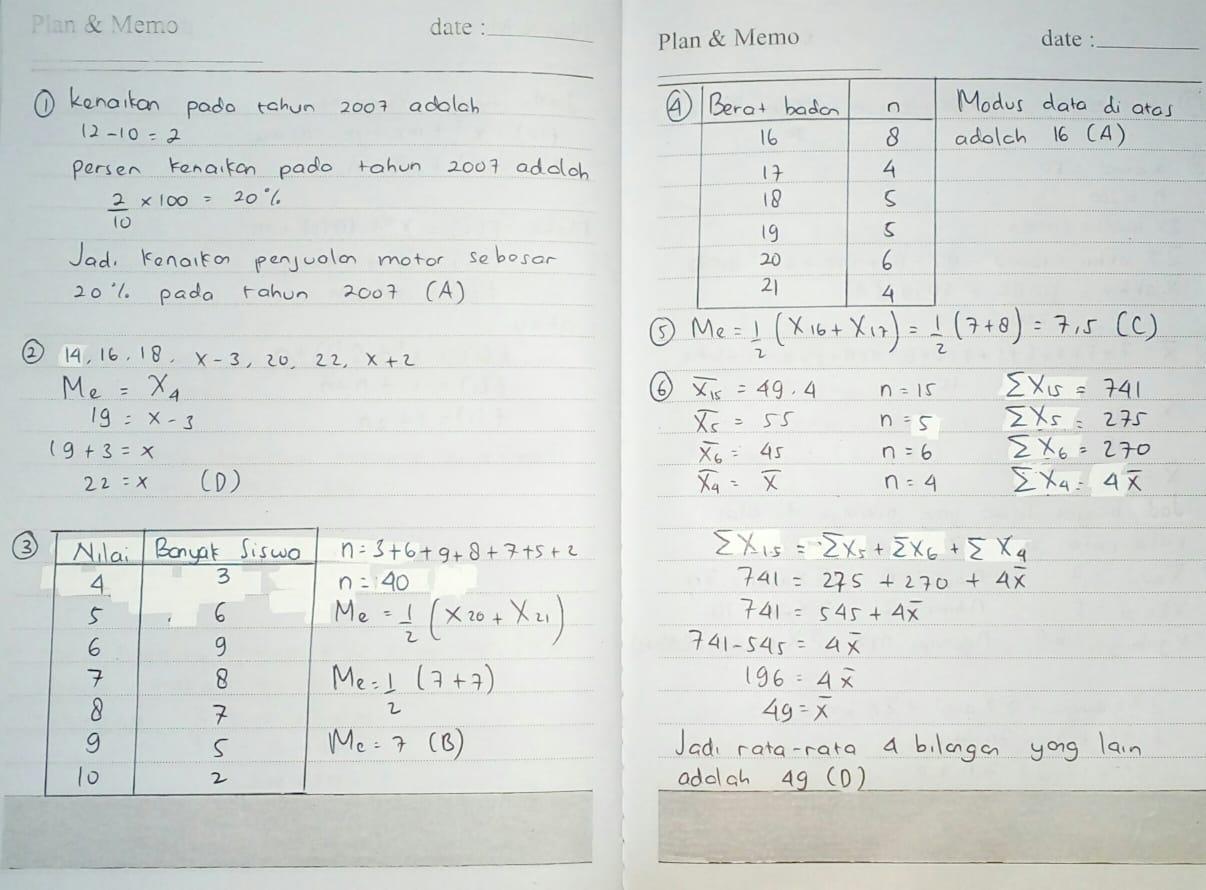 Plan & Memo date :
① Kenaikan pada tahun 2007 adalah
12 - 10 = 2
persen kenaikan pada tahun 2007 adalah
2/10 × 100 = 20 %
Jadi kenaikan penjualan motor sebesar
20 % pada tahun 2007 (A)
② 14, 16, 18, x - 3, 20, 22, x + 2
Me = X₄
19 = x - 3
19 + 3 = x
22 = x (D)
③ Nilai Banyak Siswa
4 3
5 6
6 9
7 8
8 7
9 5
10 2
n = 3 + 6 + 9 + 8 + 7 + 5 + 2
n = 40
Me = 1/2 (X₂₀ + X₂₁)
Me = 1/2 (7 + 7)
Me = 7 (B)
Plan & Memo date :
④ Berat badan n
16 8
17 4
18 5
19 5
20 6
21 4
Modus data di atas
adalah 16 (A)
⑤ Me = 1/2 (X₁₆ + X₁₇) = 1/2 (7 + 8) = 7,5 (C)
⑥ x̄₁₅ = 49.4 n = 15 ΣX₁₅ = 741
x̄₅ = 55 n = 5 ΣX₅ = 275
x̄₆ = 45 n = 6 ΣX₆ = 270
x̄₄ = x̄ n = 4 ΣX₄ = 4x̄
ΣX₁₅ = ΣX₅ + ΣX₆ + ΣX₄
741 = 275 + 270 + 4x̄
741 = 545 + 4x̄
741 - 545 = 4x̄
196 = 4x̄
49 = x̄
Jadi rata-rata 4 bilangan yang lain
adalah 49 (D)